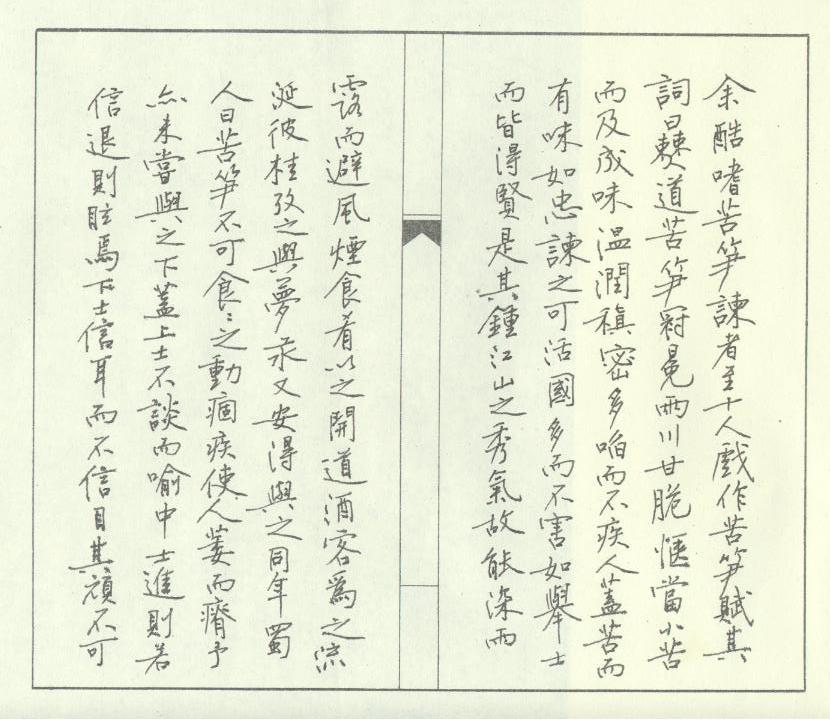 余酷嗜苦笋諫者至十人戲作苦笋賦其
詞曰僰道苦笋冠冕兩川甘脆愜當小苦
而及成味温潤稹密多啗而不疾人蓋苦而
有味如忠諫之可活國多而不害如舉士
而皆得賢是其鍾江山之秀氣故能深雨
露而避風煙食肴以之開道酒客爲之流
涎彼桂玫之與夢永又安得與之同年蜀
人曰苦笋不可食〻之動痼疾使人萎而瘠予
亦未嘗與之下蓋上士不談而喻中士進則若
信退則眩焉下士信耳而不信目其頑不可